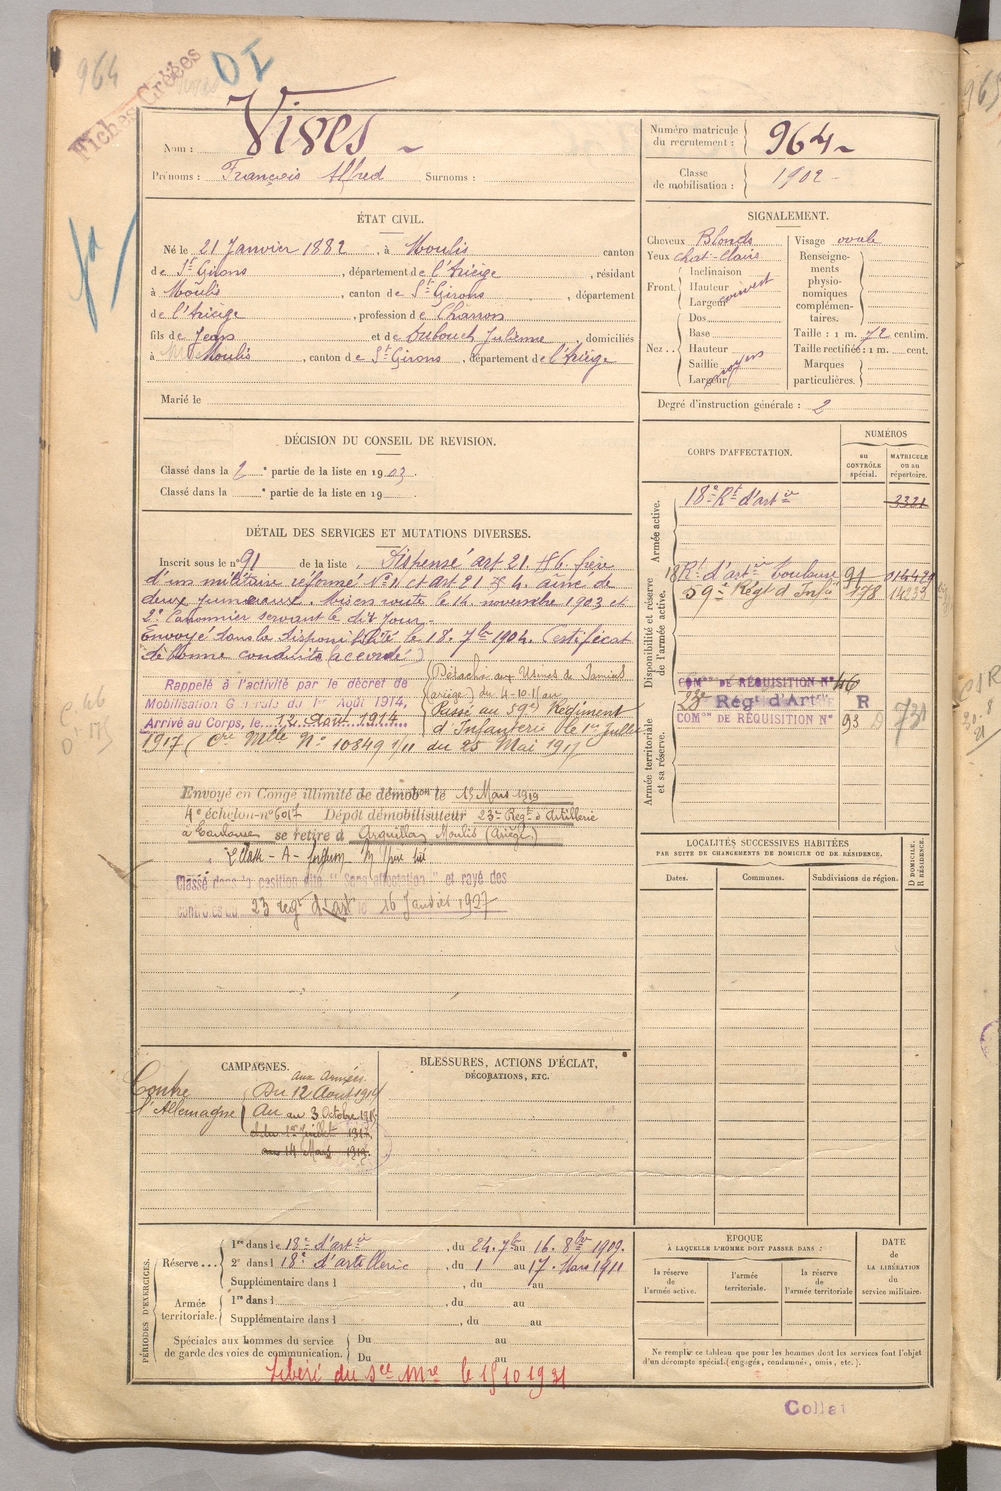 964
Fiches Créées
DI
Nom : Vives
Prénoms : François Alfred Surnoms :
Numéro matricule du recrutement : 964
Classe de mobilisation : 1902
ÉTAT CIVIL.
Né le 21 Janvier 1882, à Moulis canton
de St Girons, département de l'Ariège, résidant
à Moulis, canton de St Girons, département
de l'Ariège, profession de Charron
fils de Jean et de Dubouch Julienne, domiciliés
à Moulis, canton de St Girons, département de l'Ariège
Marié le
SIGNALEMENT.
Cheveux Blonds
Yeux chat-clairs
Front. Inclinaison
Hauteur
Largeur couvert
Nez.. Dos
Base
Hauteur
Saillie
Largeur moyens
Visage ovale
Renseigne-
ments
physio-
nomiques
complémen-
taires.
Taille : 1 m. 72 centim.
Taille rectifiée : 1 m. cent.
Marques
particulières.
Degré d'instruction générale : 2
DÉCISION DU CONSEIL DE REVISION.
Classé dans la 2e partie de la liste en 1903.
Classé dans la e partie de la liste en 19
DÉTAIL DES SERVICES ET MUTATIONS DIVERSES.
Inscrit sous le n° 91 de la liste. Dispensé art 21. § 6. frère
d'un militaire réformé N° 1 et art 21 § 4. aîné de
deux jumeaux. Mis en route le 14 novembre 1903 et
2e Canonnier servant le dit jour.
Envoyé dans la disponibilité le 18. 7bre 1904. Certificat
de bonne conduite accordé
Rappelé à l'activité par le décret de
Mobilisation Générale du 1er Août 1914,
Arrivé au Corps, le 12 Août 1914
Détaché aux Usines de
(ariège) du 4-10-15 au
Passé au 59e Régiment
d'Infanterie le 1er juillet
1917 (Cre Mlle N° 10849 1/11 du 25 Mai 1917
Envoyé en Congé illimité de démobon le 15 Mars 1919
4e échelon - n° 6017 Dépôt démobilisateur 23e Régt d'Artillerie
à Toulouse se retire à Arguilla, Moulis (Ariège)
Classé dans la position dite "Sans affectation" et rayé des
contrôles du 23 regt d'art le 16 1927
CORPS D'AFFECTATION.
NUMÉROS
au CONTRÔLE spécial.
MATRICULE ou au répertoire.
Armée active.
18e Rt d'artie
2321
Disponibilité et réserve de l'armée active.
18 Rt d'artie Toulouse 91
59e Régt d'Infie 178
Armée territoriale et sa réserve.
COMon DE RÉQUISITION N° 46
23e Régt d'Artie R
COMon DE RÉQUISITION N° 93 D 731
LOCALITÉS SUCCESSIVES HABITÉES
PAR SUITE DE CHANGEMENTS DE DOMICILE OU DE RÉSIDENCE.
Dates.
Communes.
Subdivisions de région.
D DOMICILE.
R RÉSIDENCE.
CAMPAGNES.
aux Armées
Contre Du 12 Août 1914
l'Allemagne Au au 3 Octobre 1915
et du 1er Juillet 1917
au 14 Mars 1919.
BLESSURES, ACTIONS D'ÉCLAT,
DÉCORATIONS, ETC.
PÉRIODES D'EXERCICES.
Réserve ... 1re dans le 18e d'artie, du 24. 7bre au 16. 8bre 1909.
2e dans l 18e d'artillerie, du 1 au 17 Mars 1911
Supplémentaire dans l , du au
Armée territoriale. 1re dans l , du au
Supplémentaire dans l , du au
Spéciales aux hommes du service
de garde des voies de communication.
Du au
Du au
Libéré du sce mre le 15 10 1931
ÉPOQUE
À LAQUELLE L'HOMME DOIT PASSER DANS :
la réserve de l'armée active.
l'armée territoriale.
la réserve de l'armée territoriale
DATE
de
LA LIBÉRATION
du
service militaire.
Ne remplir ce tableau que pour les hommes dont les services font l'objet
d'un décompte spécial (engagés, condamnés, omis, etc.).